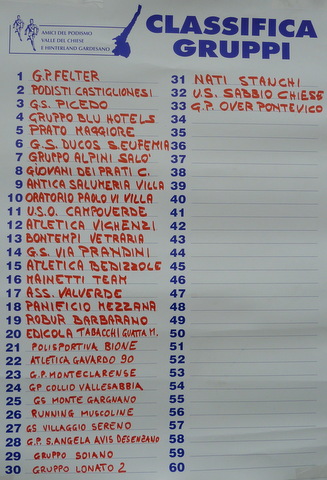 AMICI DEL PODISMO
VALLE DEL CHIESE
E HINTERLAND GARDESANO
CLASSIFICA
GRUPPI
1 G.P. FELTER
2 PODISTI CASTIGLIONESI
3 G.S. PICEDO
4 GRUPPO BLU HOTELS
5 PRATO MAGGIORE
6 G.S. DUCOS S.EUFEMIA
7 GRUPPO ALPINI SALO'
8 GIOVANI DEI PRATI C.
9 ANTICA SALUMERIA VILLA
10 ORATORIO PAOLO VI VILLA
11 U.S.O. CAMPOVERDE
12 ATLETICA VIGHENZI
13 BONTEMPI VETRARIA
14 G.S. VIA PRANDINI
15 ATLETICA BEDIZZOLE
16 MAINETTI TEAM
17 ASS. VALVERDE
18 PANIFICIO MEZZANA
19 ROBUR BARBARANO
20 EDICOLA TABACCHI GUATTA M.
21 POLISPORTIVA BIONE
22 ATLETICA GAVARDO 90
23 G.P. MONTECLARENSE
24 GP COLLIO VALLESABBIA
25 GS MONTE GARGNANO
26 RUNNING MUSCOLINE
27 GS. VILLAGGIO SERENO
28 G.P. S.ANGELA AVIS DESENZANO
29 GRUPPO SOIANO
30 GRUPPO LONATO 2
31 NATI STANCHI
32 U.S. SABBIO CHIESE
33 G.P. OVER PONTEVICO
34
35
36
37
38
39
40
41
42
43
44
45
46
47
48
49
50
51
52
53
54
55
56
57
58
59
60